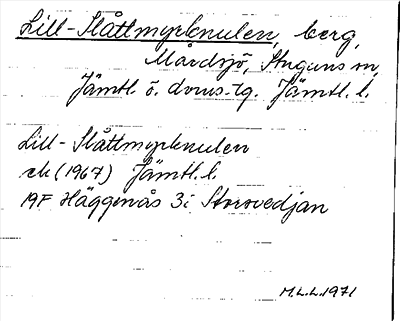 Lill-Slåttmyrknulen, berg,
Mårdsjö, Stuguns sn,
Jämtl. ö. doms.-tg. Jämtl. l.
Lill-Slåttmyrknulen
ek (1967) Jämtl. l.
19F Häggenås 3i Storovedjan
M.L.L. 1971